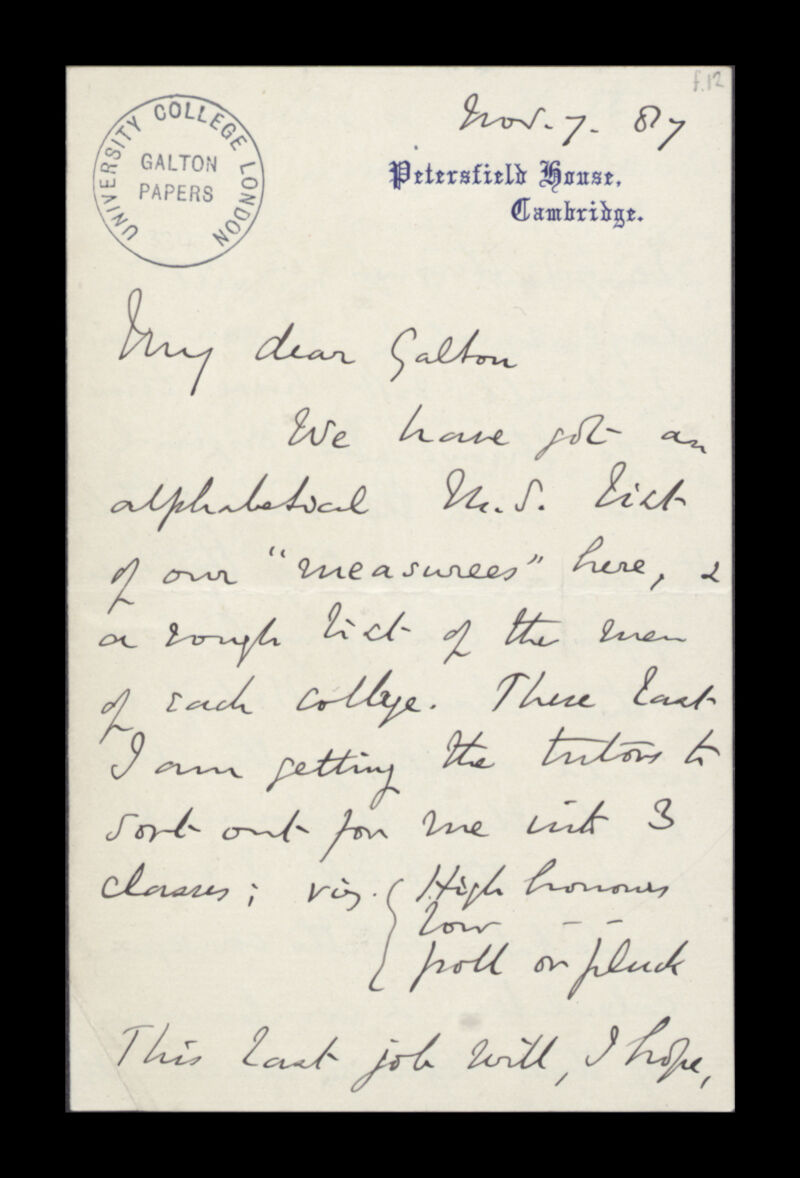 f.12
UNIVERSITY COLLEGE LONDON
GALTON
PAPERS
Nov. 7. 87
Petersfield House,
Cambridge.
My dear Galton
We have got an
alphabetical M.S. list
of our "measurees" here, &
a rough list of the men
of each college. These last
I am getting the tutors to
sort out for me into 3
classes; viz. { High honours
low — —
poll or pluck
This last job will, I hope,